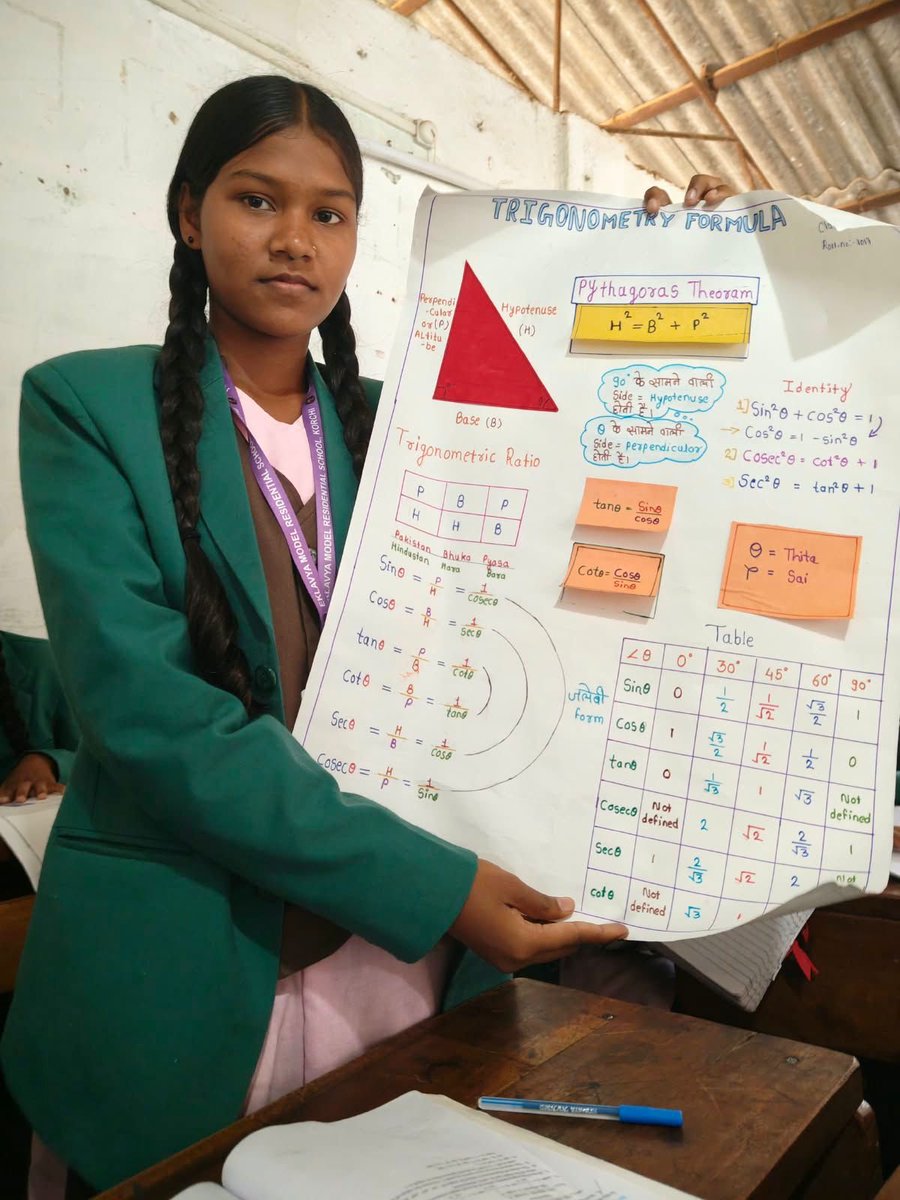 TRIGONOMETRY FORMULA
Roll.no:-
Perpendi
-cular
or(P)
Altitu
-be
Hypotenuse
(H)
Base (B)
Pythagoras Theoram
H² = B² + P²
90° के सामने वाली
Side = Hypotenuse
होती है।
θ के सामने वाली
Side = perpendicular
होती है।
Identity
1] Sin²θ + cos²θ = 1
→ Cos²θ = 1 - sin²θ
2] Cosec²θ = cot²θ + 1
3] Sec²θ = tan²θ + 1
Trigonometric Ratio
P B P
H H B
Pakistan Bhuka Pyasa
Hindustan Hara Bara
Sinθ = P/H = 1/cosecθ
Cosθ = B/H = 1/secθ
tanθ = P/B = 1/cotθ
cotθ = B/P = 1/tanθ
Secθ = H/B = 1/cosθ
Cosecθ = H/P = 1/sinθ
जलेबी
form
tanθ = Sinθ/cosθ
Cotθ = Cosθ/sinθ
θ = Thita
φ = Sai
Table
∠θ 0° 30° 45° 60° 90°
Sinθ 0 1/2 1/√2 √3/2 1
Cosθ 1 √3/2 1/√2 1/2 0
tanθ 0 1/√3 1 √3 Not defined
Cosecθ Not defined 2 √2 2/√3 1
Secθ 1 2/√3 √2 2 Not
cotθ Not defined √3 1
EKLAVYA MODEL RESIDENTIAL SCHOOL, KORCHI
EKLAVYA MODEL RESIDENTIAL SCHOOL